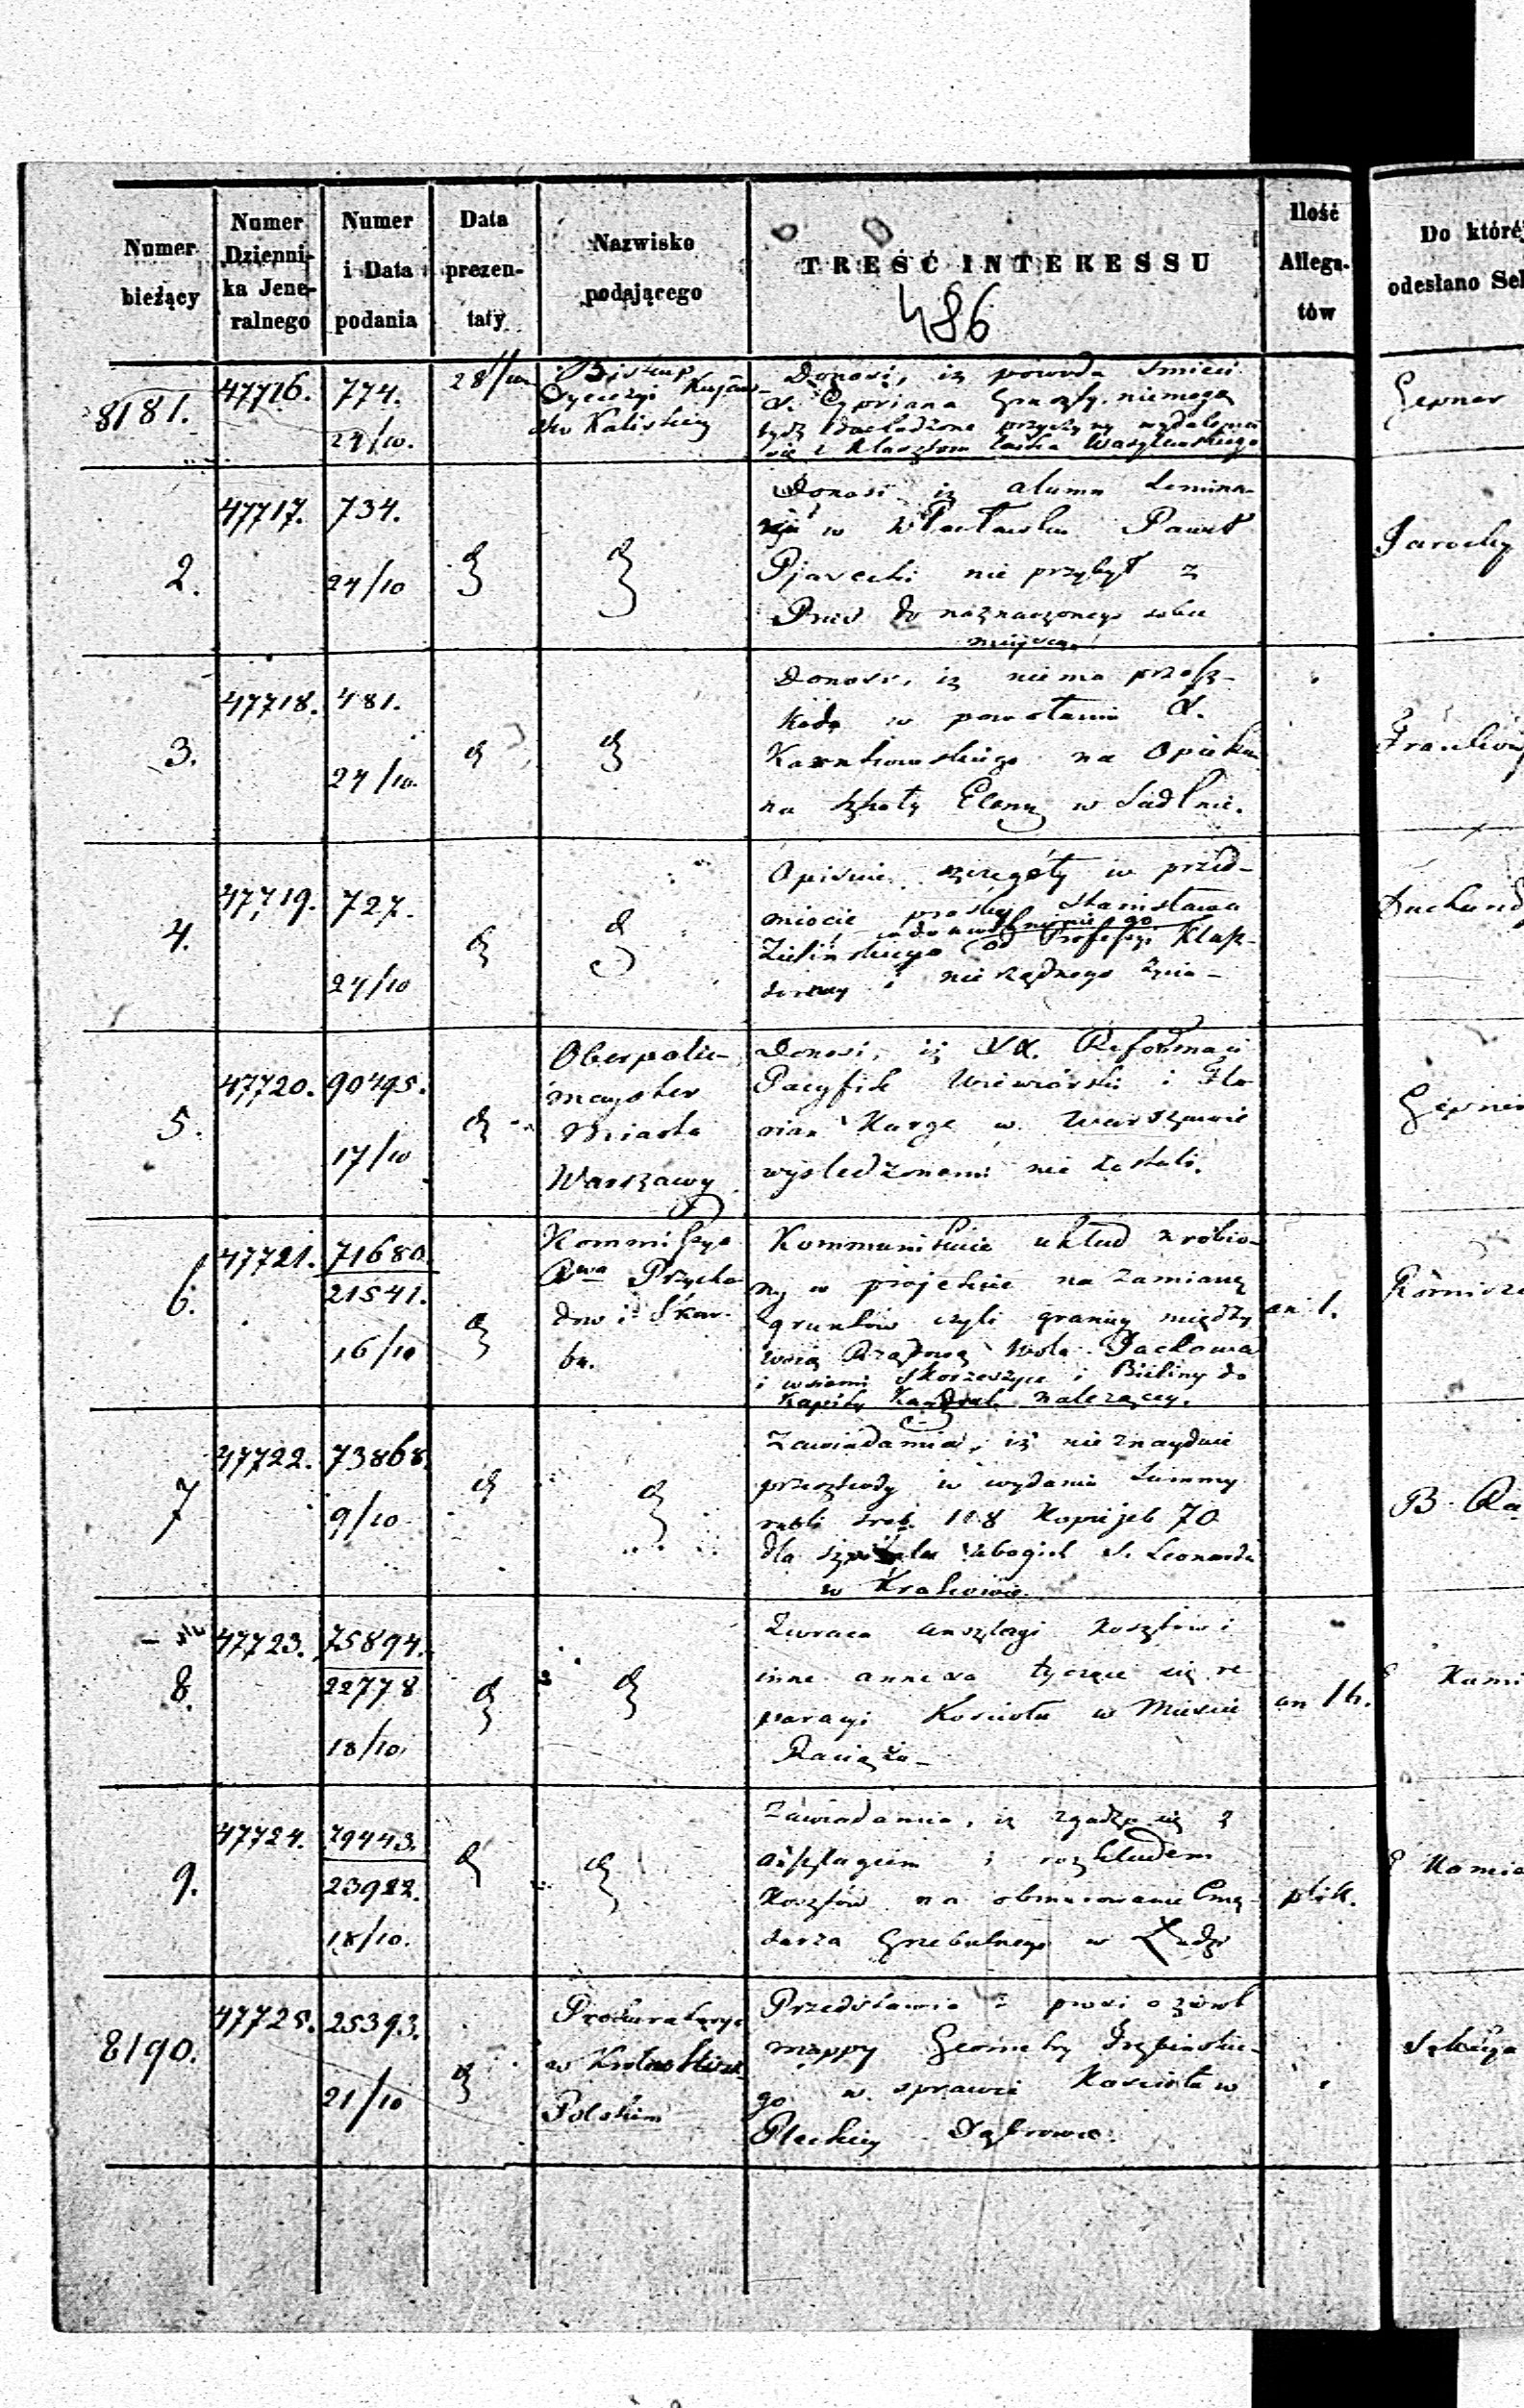 Numer bieżący
Numer Dzienni- ka Jene- ralnego
Numer i Data podania
Data prezen- taty
Nazwisko podającego
TREŚĆ INTERESSU
Ilość Allega- tów
Do któréj
odesłano Sek
486
8181.
47716.
774.
24/10.
28/10
Biskup
Dyecezyi Kujaw-
sko Kaliskiey
Donosi, iż powodu śmierci
X. Cypriana niemogą
bydź przyczyny wydalenia
się z Klasztoru
Gepner
2.
47717.
734.
24/10
Donosi iż alumn Semina-
w Paweł
Pjarecki nie przybył z
Prus do naznaczonego sobie
miejsca
3.
47718.
481.
24/10.
Donosi, iż niema przesz-
kody w powołaniu X.
Karnkowskiego na Opieku-
na Szkoły Elem: w Sadlnie.
4.
47719.
727.
24/10
Opisuie szczegóły w przed-
miocie prośby Stanisława
Zielińskiego od Professyi Klasz-
torney i nierządnego życia-
5.
47720.
90495.
17/10
Oberpolic-
mayster
Miasta
Warszawy
Donosi, iż XX. Reformaci
Pacyfik Wiewiórski i Flo
rian Karge w Warszawie
wysledzonemi nie zostali.
6.
47721.
71680.
21541.
16/10
Kommissya
Rwa Przycho-
dów i Skar-
bu.
Kommunikuie układ zrobio-
ny w projekcie na zamianę
gruntów czyli granicy między
wsią Rządową Wola Jachowa
i wsiami Skorzeszyce i Bieliny do
Kapituły należącey.
an 1.
7
47722.
73868.
9/10
Zawiadamia, iż nieznayduie
przeszkody w wydaniu Summy
rubli sreb. 118 Kopijek 70
dla szpitala ubogich S. Leonarda
w Krakowie.
8.
47723.
75894.
22778
18/10.
Zwraca anszlagi kosztów i
inne annexa tyczące się re-
paracyi Kościoła w Mieście
Raciążu-
an 14.
9.
47724.
79443.
23922.
18/10.
Zawiadamia, iż zgadza się z
anszlagiem i rozkładem
Kosztów na obmurowanie Cmę-
tarza Grzebalnego w Łodzi
plik.
8190.
47725.
25393.
21/10
Prokuratorya
w Królestwie
Polskim
Przedstawia i prosi o zwrot
mappy Geometry
go w sprawie Kościoła w
Dąbrowie.